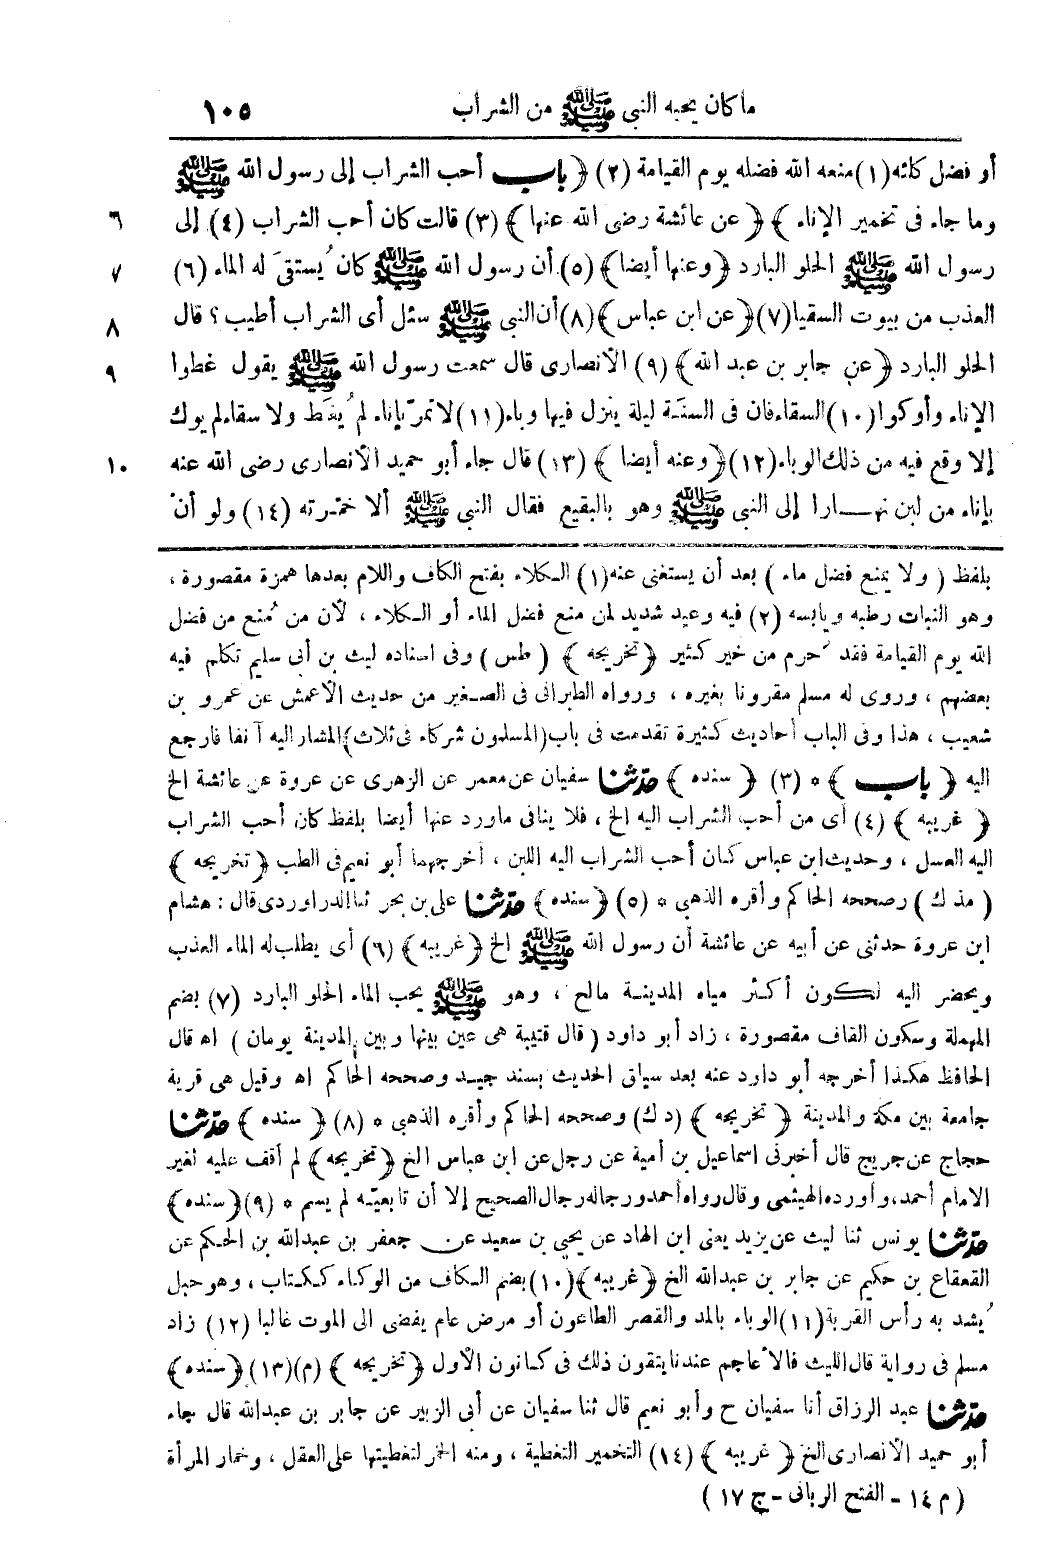 ما كان يحبه النبي ﷺ من الشراب ١٠٥
أو فضل كلئه (١) منعه الله فضله يوم القيامة (٢) ﴿ باب أحب الشراب إلى رسول الله ﷺ
وما جاء فى تخمير الإناء ﴾ ﴿ عن عائشة رضى الله عنها ﴾ (٣) قالت كان أحب الشراب (٤) إلى ٦
رسول الله ﷺ الحلو البارد ﴿ وعنها أيضا ﴾ (٥) أن رسول الله ﷺ كان يُستقىَ له الماء (٦) ٧
العذب من بيوت السقيا (٧) ﴿ عن ابن عباس ﴾ (٨) أن النبى ﷺ سئل أى الشراب أطيب ؟ قال ٨
الحلو البارد ﴿ عن جابر بن عبد الله ﴾ (٩) الأنصارى قال سمعت رسول الله ﷺ يقول غطوا ٩
الإناء وأوكوا (١٠) السقاء فان فى السنة ليلة ينزل فيها وباء (١١) لا تمرّ بإناء لم يُغَط ولا سقاء لم يوك
إلا وقع فيه من ذلك الوباء (١٢) ﴿ وعنه أيضا ﴾ (١٣) قال جاء أبو حميد الأنصارى رضى الله عنه ١٠
بإناء من لبن نهـارا إلى النبى ﷺ وهو بالبقيع فقال النبى ﷺ ألا خمّرته (١٤) ولو أن
بلفظ ( ولا يمنع فضل ماء ) بعد أن يستغنى عنه (١) الـكلاء بفتح الكاف واللام بعدها همزة مقصورة ،
وهو النبات رطبه ويابسه (٢) فيه وعيد شديد لمن منع فضل الماء أو الـكلاء ، لأن من مُنع من فضل
الله يوم القيامة فقد حُرم من خير كثير ﴿ تخريجه ﴾ ( طس ) وفى اسناده ليث بن أبى سليم تكلم فيه
بعضهم ، وروى له مسلم مقرونا بغيره ، ورواه الطبرانى فى الصـغير من حديث الأعمش عن عمرو بن
شعيب ، هذا وفى الباب أحاديث كثيرة تقدمت فى باب ( المسلمون شركاء فى ثلاث ) المشار اليه آنفا فارجع
اليه ﴿ باب ﴾ * (٣) ﴿ سنده ﴾ حدّثنا سفيان عن معمر عن الزهرى عن عروة عن عائشة الخ
﴿ غريبه ﴾ (٤) أى من أحب الشراب اليه الخ ، فلا ينافى ما ورد عنها أيضا بلفظ كان أحب الشراب
اليه العسل ، وحديث ابن عباس كان أحب الشراب اليه اللبن ، أخرجهما أبو نعيم فى الطب ﴿ تخريجه ﴾
( مذ ك ) وصححه الحاكم وأقره الذهبى * (٥) ﴿ سنده ﴾ حدّثنا على بن بحر ثنا الدراوردى قال : هشام
ابن عروة حدثنى عن أبيه عن عائشة أن رسول الله ﷺ الخ ﴿ غريبه ﴾ (٦) أى يطلب له الماء العذب
ويحضر اليه لـكون أكـثر مياه المدينـة مالح ، وهو ﷺ يحب الماء الحلو البارد (٧) بضم
المهملة وسكون القاف مقصورة ، زاد أبو داود ( قال قتيبة هى عين بينها وبين المدينة يومان ) اه قال
الحافظ هكذا أخرجه أبو دارد عنه بعد سياق الحديث بسند جيـد وصححه الحاكم اه وقيل هى قرية
جامعة بين مكة والمدينة ﴿ تخريجه ﴾ ( د ك ) وصححه الحاكم وأقره الذهبى * (٨) ﴿ سنده ﴾ حدّثنا
حجاج عن جريج قال أخبرنى اسماعيل بن أمية عن رجل عن ابن عباس الخ ﴿ تخريجه ﴾ لم أقف عليه لغير
الامام أحمد، وأورده الهيثمى وقال رواه أحمد ورجاله رجال الصحيح إلا أن تابعيّه لم يسم * (٩) ﴿ سنده ﴾
حدّثنا يونس ثنا ليث عن يزيد يعنى ابن الهاد عن يحيى بن سعيد عن جعفر بن عبدالله بن الحـكم عن
القعقاع بن حكيم عن جابر بن عبدالله الخ ﴿ غريبه ﴾ (١٠) بضم الـكاف من الوكاء كـكتاب ، وهو حبل
يُشد به رأس القربة (١١) الوباء بالمد والقصر الطاعون أو مرض عام يفضى الى الموت غالبا (١٢) زاد
مسلم فى رواية قال الليث فالأعاجم عندنا يتقون ذلك فى كانون الأول ﴿ تخريجه ﴾ (م) (١٣) ﴿ سنده ﴾
حدّثنا عبد الرزاق أنا سفيان ح وأبو نعيم قال ثنا سفيان عن أبى الزبير عن جابر بن عبدالله قال جاء
أبو حميد الأنصارى الخ ﴿ غريبه ﴾ (١٤) التخمير التغطية ، ومنه الخمر لتغطيتها على العقل ، وخمار المرأة
( م ١٤ - الفتح الربانى - ج ١٧ )